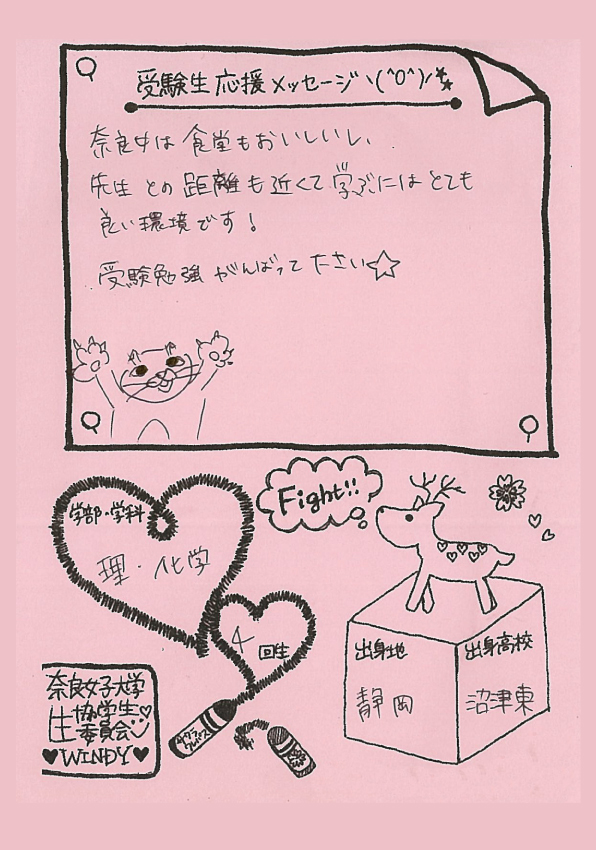 受験生応援メッセージヽ(^O^)ﾉ
奈良女は食堂もおいしいし、
先生との距離も近くて学ぶにはとても
良い環境です!
受験勉強がんばって下さい☆
Fight!!
学部・学科
理・化学
4回生
出身地
静岡
出身高校
沼津東
奈良女子大学
生協学生
委員会
♥WINDY♥
サクラ
クレパス